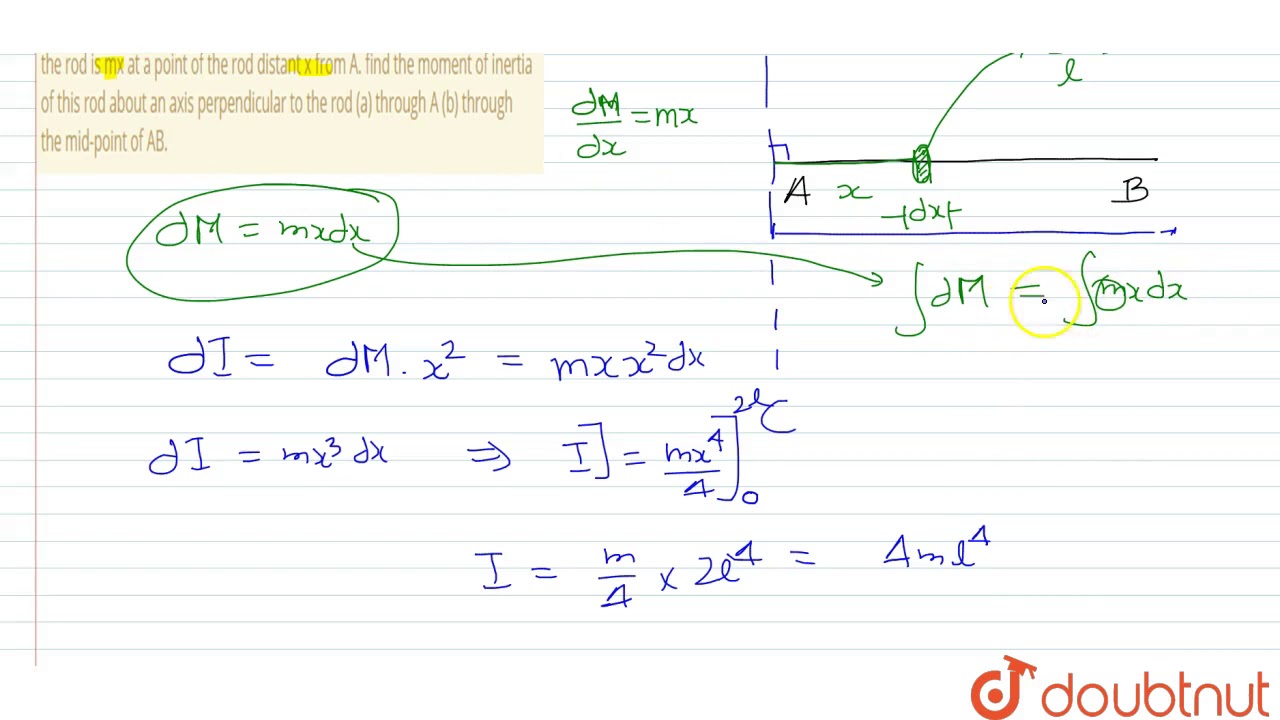 the rod is mx at a point of the rod distant x from A. find the moment of inertia
of this rod about an axis perpendicular to the rod (a) through A (b) through
the mid-point of AB.
dM/dx = mx
l
A x B
dx
dM = mxdx
∫dM = ∫mxdx
dI = dM . x² = mx x² dx
dI = mx³ dx ⇒ I] = mx⁴/4]₀²ˡ
I = m/4 × 2l⁴ = 4ml⁴
doubtnut